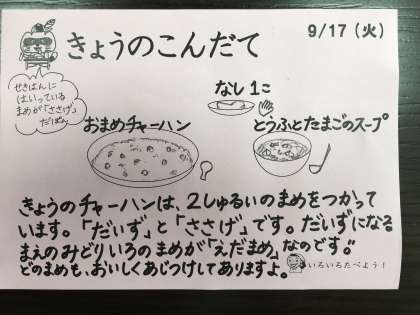 きょうのこんだて
9/17（火）
せきはんに
はいっている
まめが「ささげ」
だぽん
なし1こ
おまめチャーハン
とうふとたまごのスープ
きょうのチャーハンは、2しゅるいのまめをつかって
います。「だいず」と「ささげ」です。だいずになる
まえのみどりいろのまめが「えだまめ」なのです!!
どのまめも、おいしくあじつけしてありますよ。
いろいろたべよう！